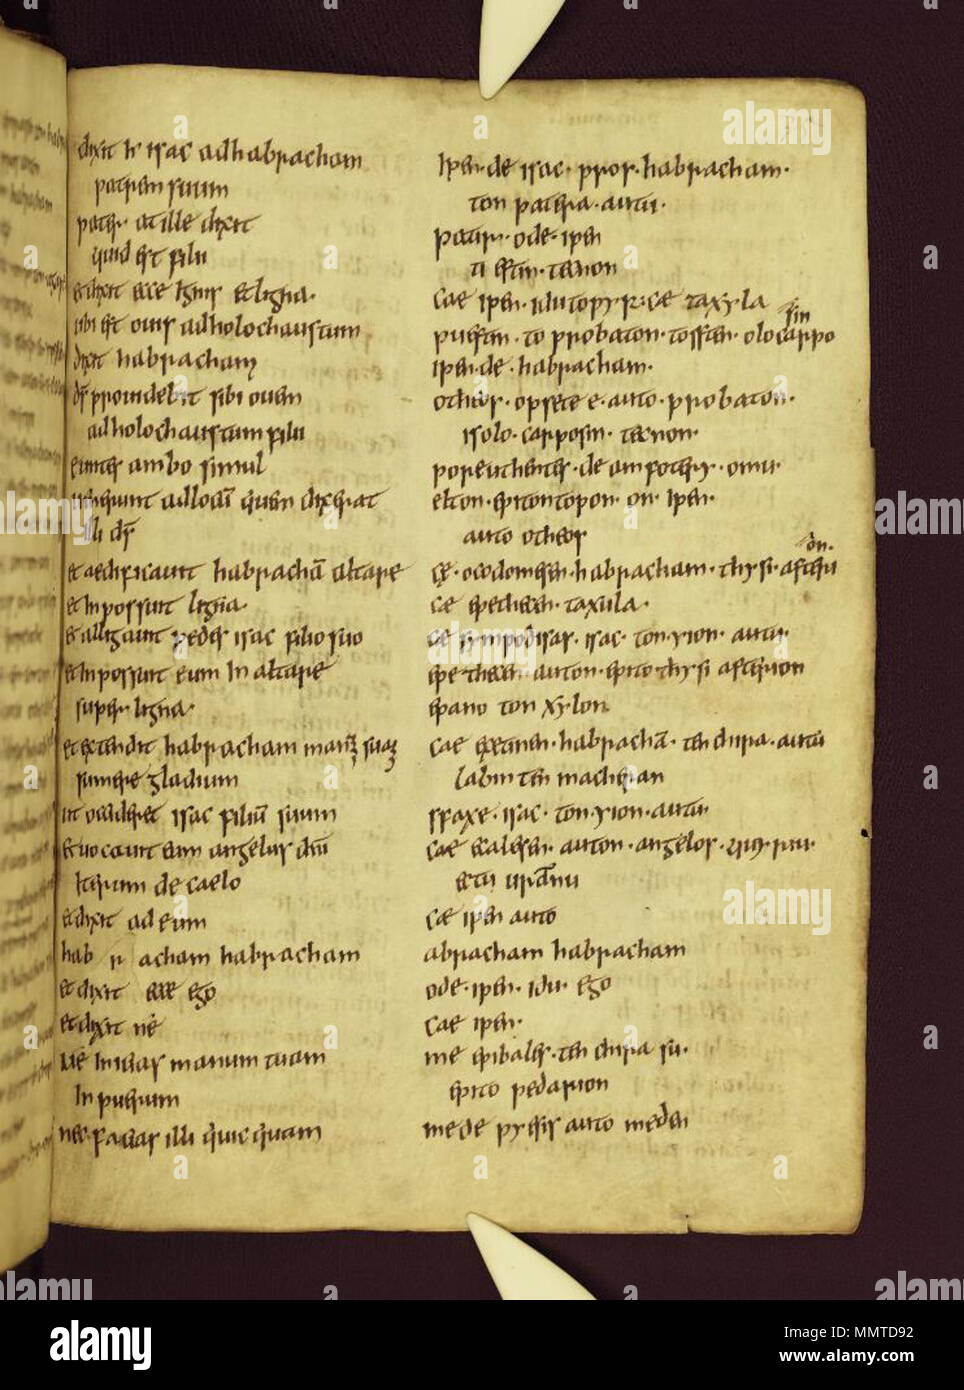 dixit h isac ad habracham
patrem suum
pater at ille dixit
quid est fili
et dixit ecce ignis et ligna.
ubi est ouis ad holochaustum
dixit habracham
ds prouidebit sibi ouem
ad holochaustum fili
euntes ambo simul
uenerunt ad locum quem dixerat
illi ds
et aedificauit habracham altare
et inpossuit ligna.
et alligauit pedes isac filio suo
et inpossuit eum in altare
super ligna.
et extendit habracham manum suam
sumere gladium
ut occideret isac filium suum
et uocauit eum angelus dni
iterum de caelo
et dixit ad eum
hab r acham habracham
et dixit ecce ego
et dixit ne
ne inicias manum tuam
in puerum
nec facias illi quicquam
ipen. de isac. pros. habracham.
ton patera. autu.
pater. ode. ipen
ti estin. tecnon
cae ipen. idu to pyr. cae ta xyla
sin
pu estin. to probaton. to ss en. olocarpo
ipen. de. habracham.
otheos. opsete e. auto. probaton.
is olo. carposin. tecnon.
poreuthentes. de amfothery. omu.
elton. epi ton topon. on. ipen.
auto otheos
on.
ce. ocodomesen. habracham. thysi. asteri
ce epethecen. taxula.
ce sympodisas. isac. ton. yion. autu.
epethecen auton. epi to thysi asterion
epano ton xylon
cae exetinen. habracham. ten chira. autu
labin ten macheran
sfaxe. isac. ton. yion. autu.
cae ecalesen. auton. angelos.
ectu uranu
cae ipen auto
abracham habracham
ode. ipen. idu. ego
cae ipen.
me epibales. ten chira su.
epi to pedarion
mede pyesis auto meden
alamy
Image ID: MMTD92
www.alamy.com